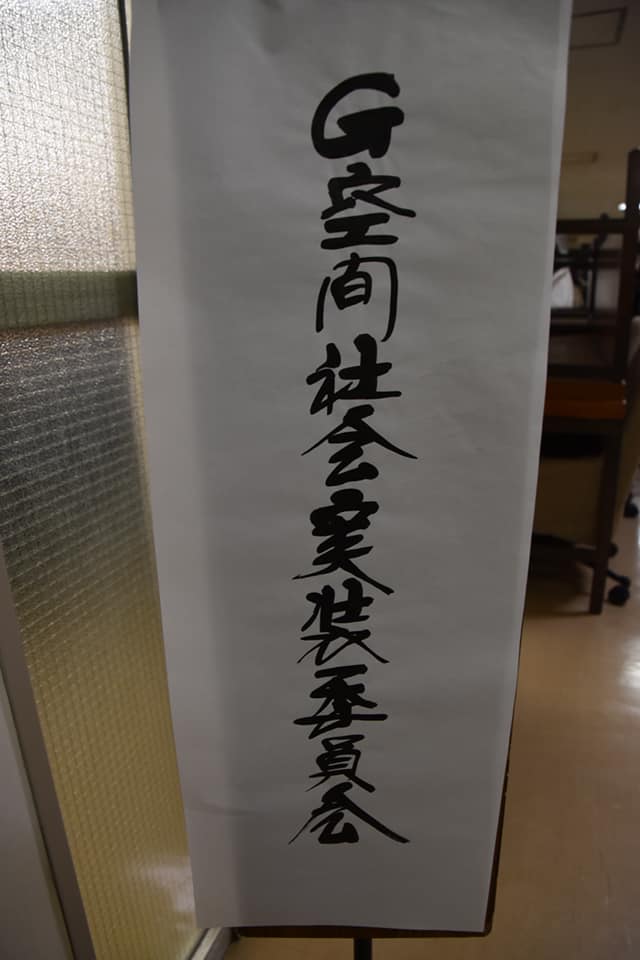 G空間社会実装委員会